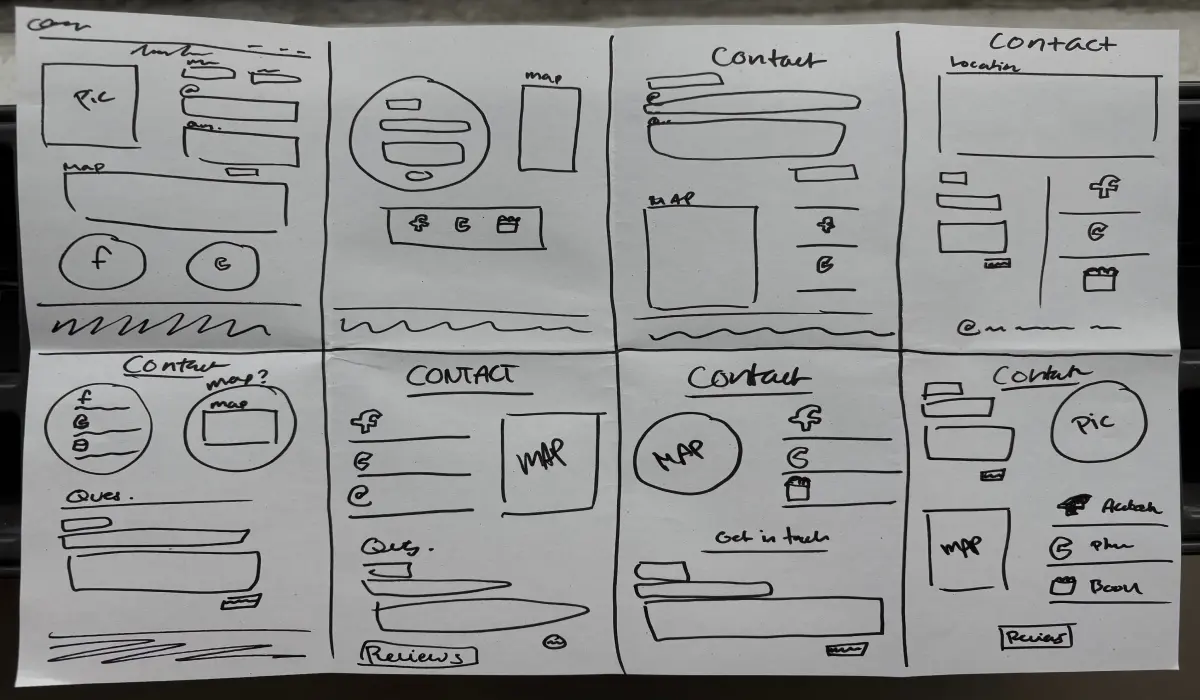 Pic
@
map
f
map
Contact
@
MAP
Contact
Location
@
Contact
map?
f
map
Ques.
CONTACT
MAP
@
Ques.
Reviews
Contact
MAP
Get in touch
Contact
Pic
MAP
Book
Reviews